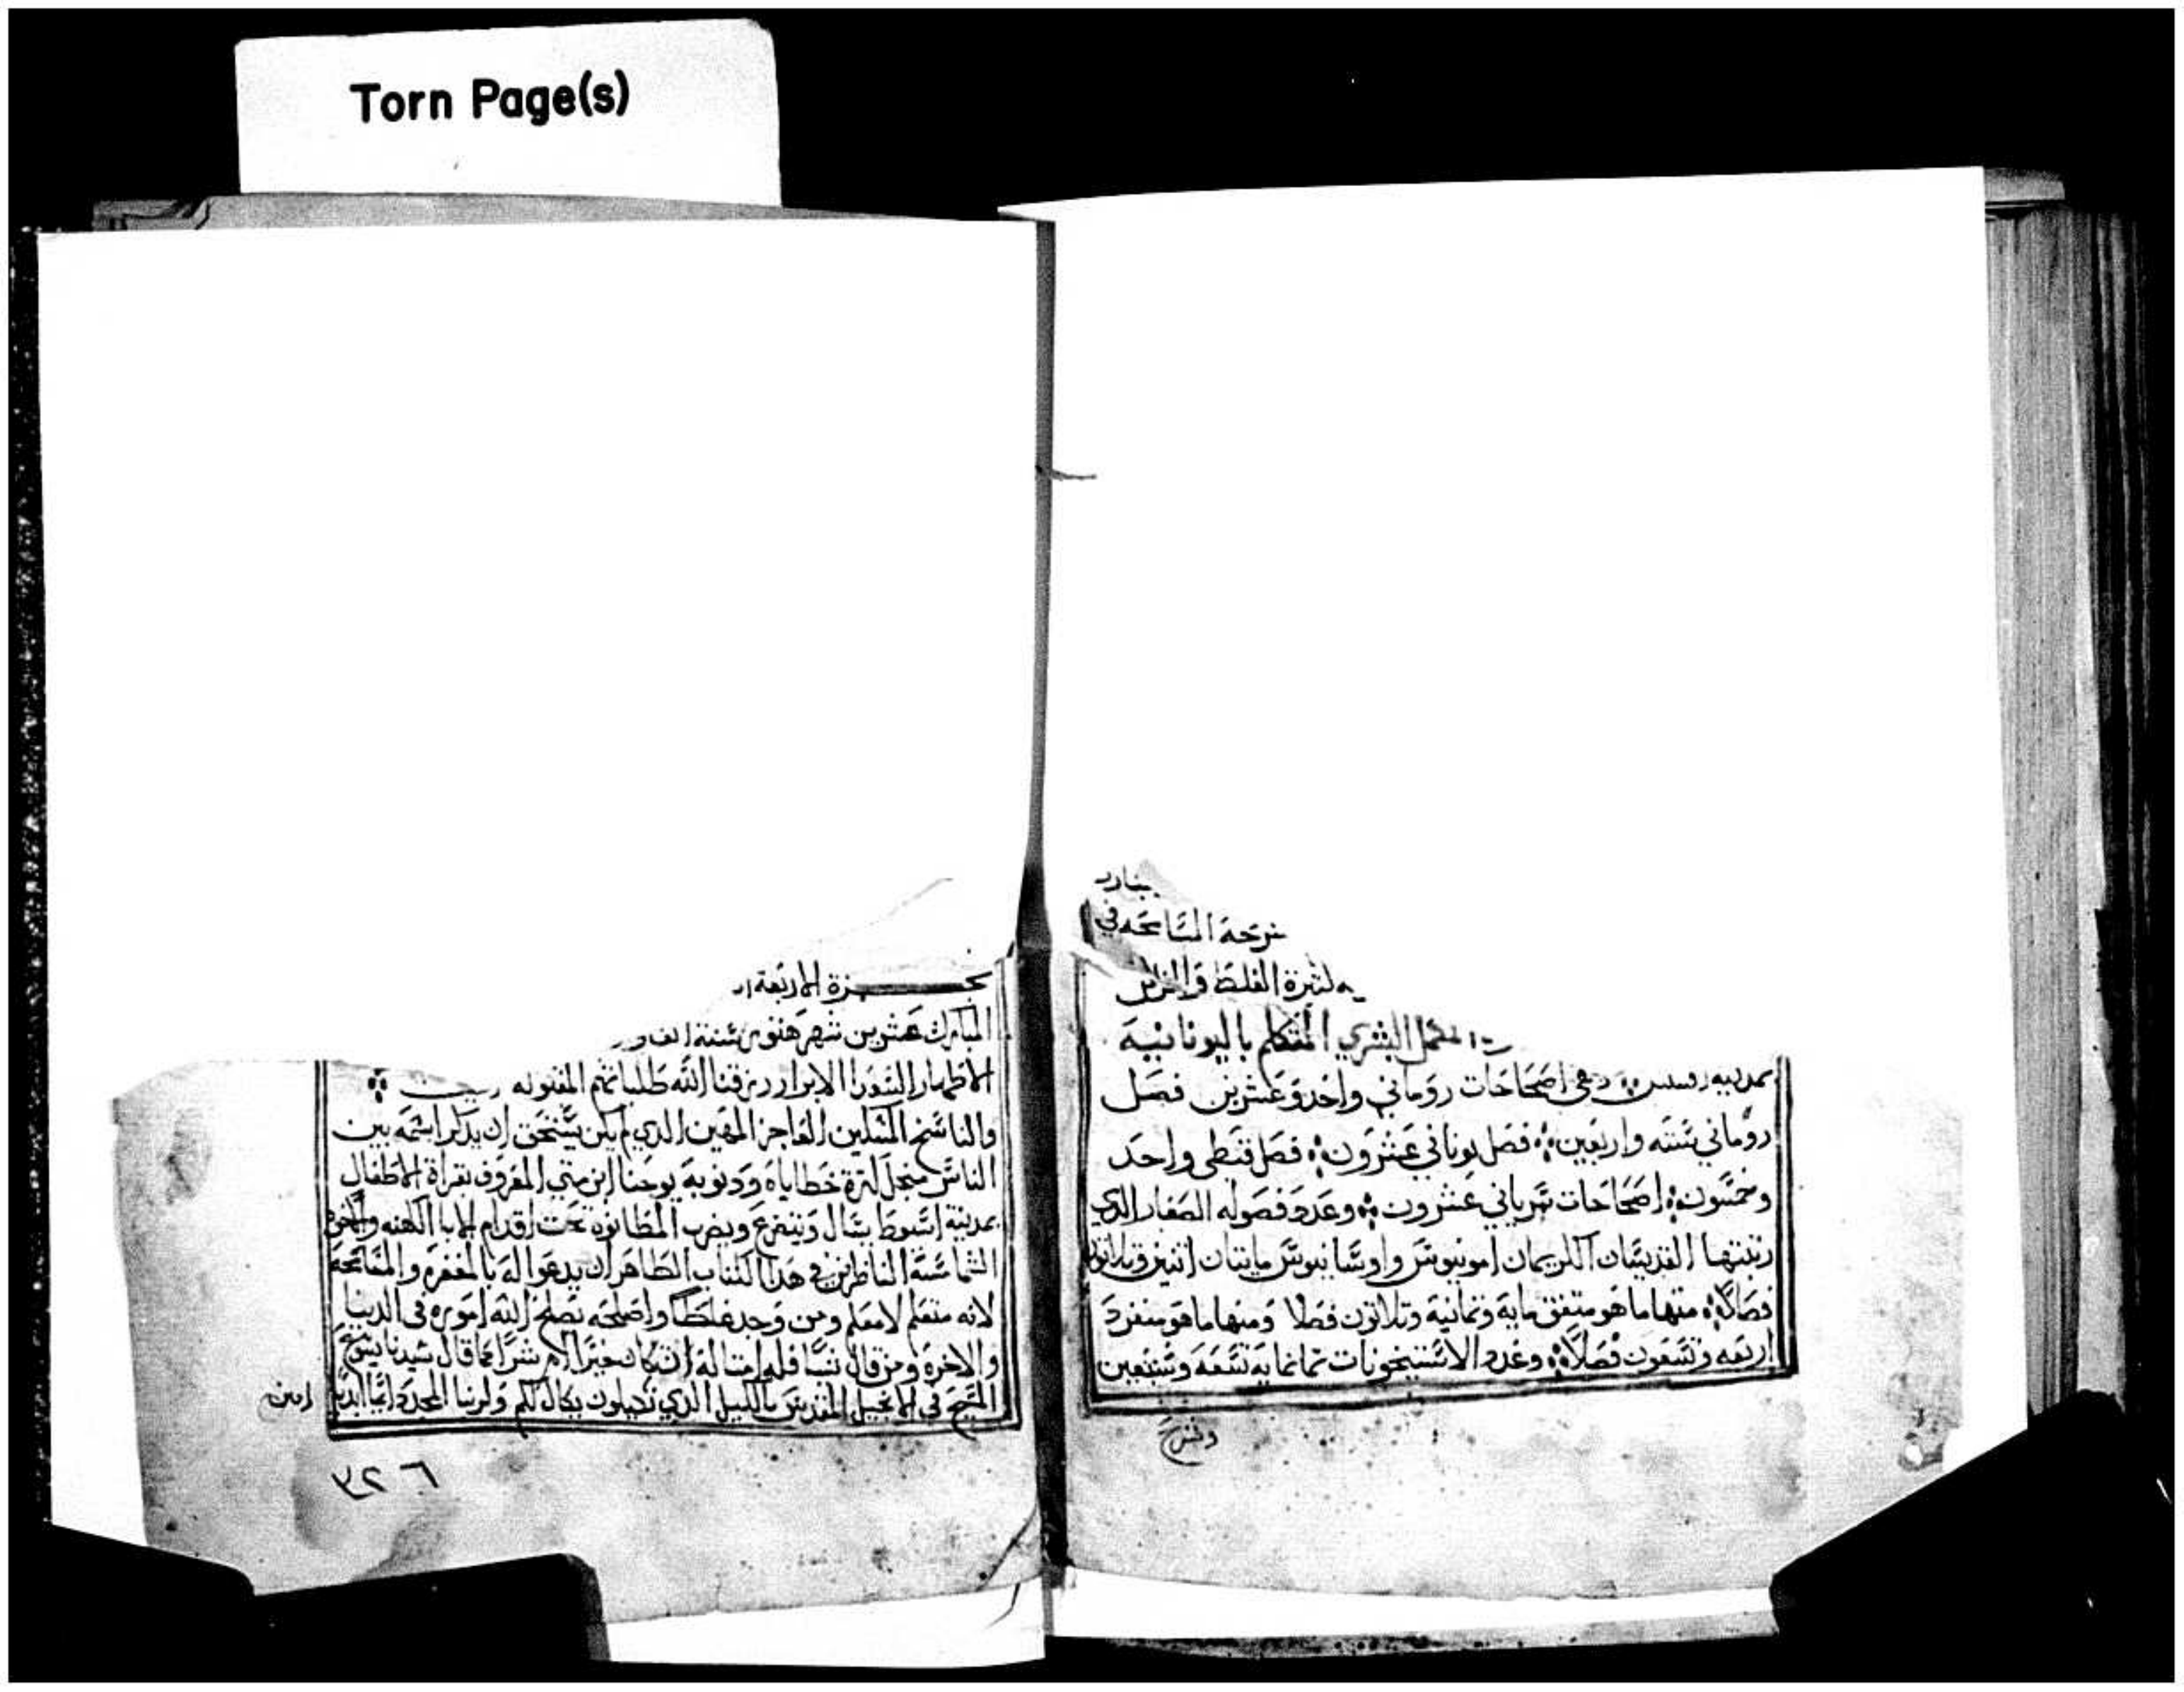 Torn Page(s)
المسامحه في
لكثرة الغلط والزلل
البشري المتكلم باليونانيه
اصحاحات روماني واحد وعشرين فصل
روماني سته واربعين فصل يوناني عشرون فصل قبطي واحد
وخمسون اصحاحات سرياني عشرون وعدد فصوله الصغار الذي
رتبتها القديسان الكريمان امونيوس واوسابيوس مايتان اتنين وتلاتون
فصلاً منها ما هو متفق مايه وتمانيه وتلاتون فصلا ومنها ما هو منفرد
اربعه وتسعون فصلاً وعدد الاستيخونات تمانمايه تسعه وسبعين
وشرح
نجزة الاربعة
المبارك عشرين شهر هتور سنة الف و
الاطهار الابرار رزقنا الله طلباتهم المقبوله
والناسخ المسكين العاجز المهين الدي لم يكن يستحق ان يدكر اسمه بين
الناس منجل كترة خطاياه ودنوبه يوحنا ابن متي المعروف بقراة الاطفال
بمدينة اسيوط يسال ويتضرع ويضرب المطانوه تحت اقدام الابا الكهنه والاخوه
الشمامسة الناظرين في هدا الكتاب الطاهر ان يدعوا له بالمغفره والمسامحة
لانه متعلم لا معلم ومن وجد غلطا واصلحه يصلح الله اموره في الدنيا
والاخره ومن قال شيا فله امتاله ان كان خيرا ام شرا كما قال سيدنا يسوع
المسيح في الانجيل المقدس بالكيل الدي تكيلون يكال لكم ولربنا المجد دايما ابديا
امين
٣٢٦